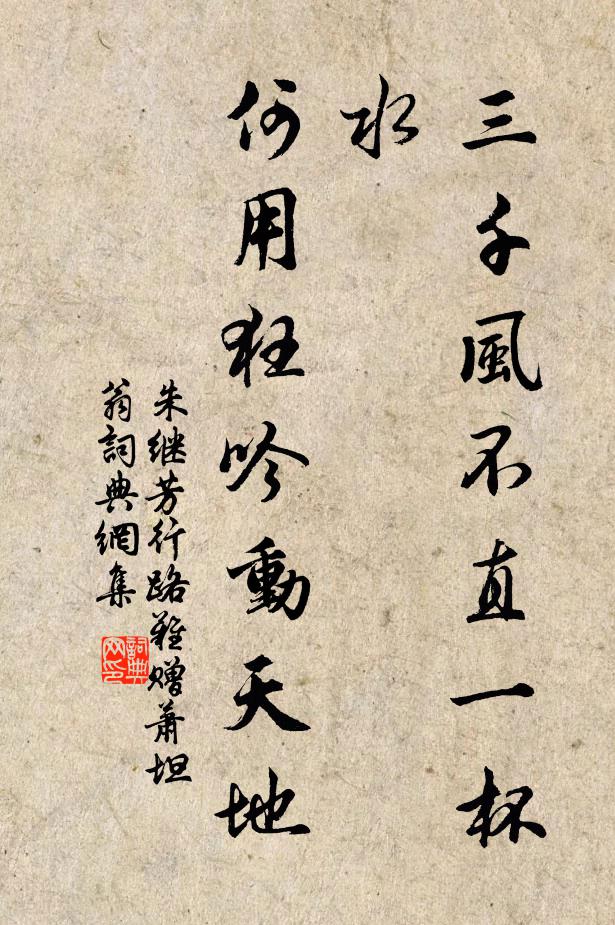 三千風不直一杯
水
何用狂吟動天地
朱继芳行路難赠萧坦
翁詞典網集
詞典
网印